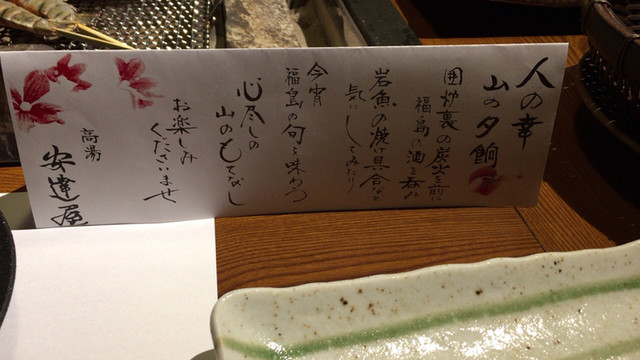 人の幸
山の夕餉
囲炉裏の炭火を前に
福島の酒を呑み
岩魚の焼け具合など
気にしてみたり
今宵
福島の旬を味わう
心尽しの
山のもてなし
お楽しみ
くださいませ
高湯
安達屋